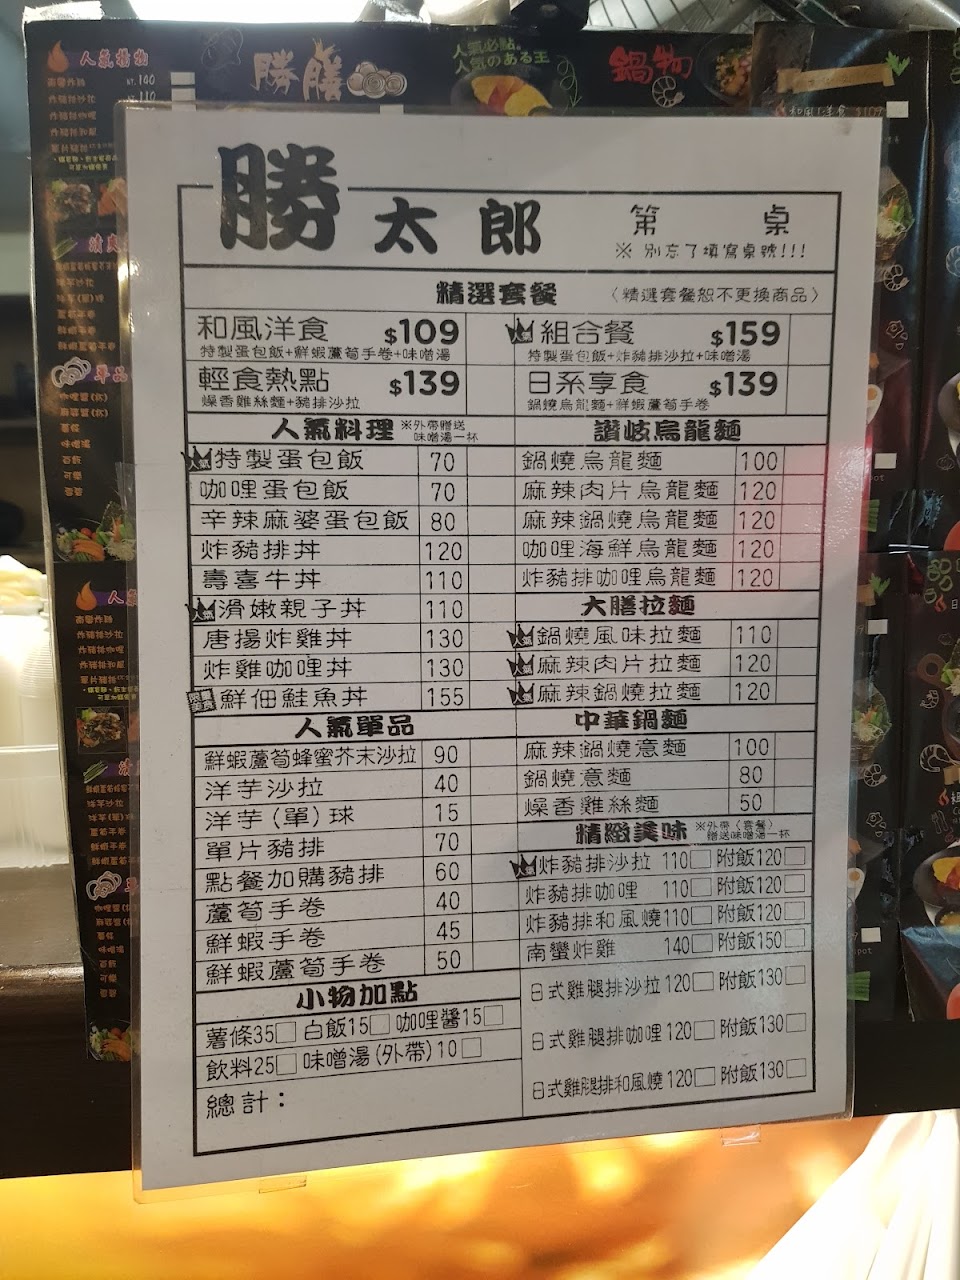 人氣必點。
人気のある王
勝膳
鍋物
勝太郎
第 桌
※ 別忘了填寫桌號!!!
精選套餐 〈精選套餐恕不更換商品〉
和風洋食 $109
特製蛋包飯+鮮蝦蘆筍手卷+味噌湯
人氣 組合餐 $159
特製蛋包飯+炸豬排沙拉+味噌湯
輕食熱點 $139
燥香雞絲麵+豬排沙拉
日系享食 $139
鍋燒烏龍麵+鮮蝦蘆筍手卷
人氣料理 ※外帶贈送
味噌湯一杯
人氣 特製蛋包飯 70
咖哩蛋包飯 70
辛辣麻婆蛋包飯 80
炸豬排丼 120
壽喜牛丼 110
人氣 滑嫩親子丼 110
唐揚炸雞丼 130
炸雞咖哩丼 130
鮮佃鮭魚丼 155
人氣單品
鮮蝦蘆筍蜂蜜芥末沙拉 90
洋芋沙拉 40
洋芋(單)球 15
單片豬排 70
點餐加購豬排 60
蘆筍手卷 40
鮮蝦手卷 45
鮮蝦蘆筍手卷 50
小物加點
薯條35□ 白飯15□ 咖哩醬15□
飲料25□ 味噌湯(外帶)10□
總計：
讚岐烏龍麵
鍋燒烏龍麵 100
麻辣肉片烏龍麵 120
麻辣鍋燒烏龍麵 120
咖哩海鮮烏龍麵 120
炸豬排咖哩烏龍麵 120
大膳拉麵
人氣 鍋燒風味拉麵 110
人氣 麻辣肉片拉麵 120
人氣 麻辣鍋燒拉麵 120
中華鍋麵
麻辣鍋燒意麵 100
鍋燒意麵 80
燥香雞絲麵 50
精緻美味 ※外帶〈套餐〉
贈送味噌湯一杯
人氣 炸豬排沙拉 110□ 附飯120□
炸豬排咖哩 110□ 附飯120□
炸豬排和風燒110□ 附飯120□
南蠻炸雞 140□ 附飯150□
日式雞腿排沙拉120□ 附飯130□
日式雞腿排咖哩120□ 附飯130□
日式雞腿排和風燒120□ 附飯130□